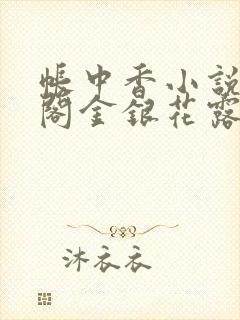 帳中香小説
閣金銀花露
沐衣衣